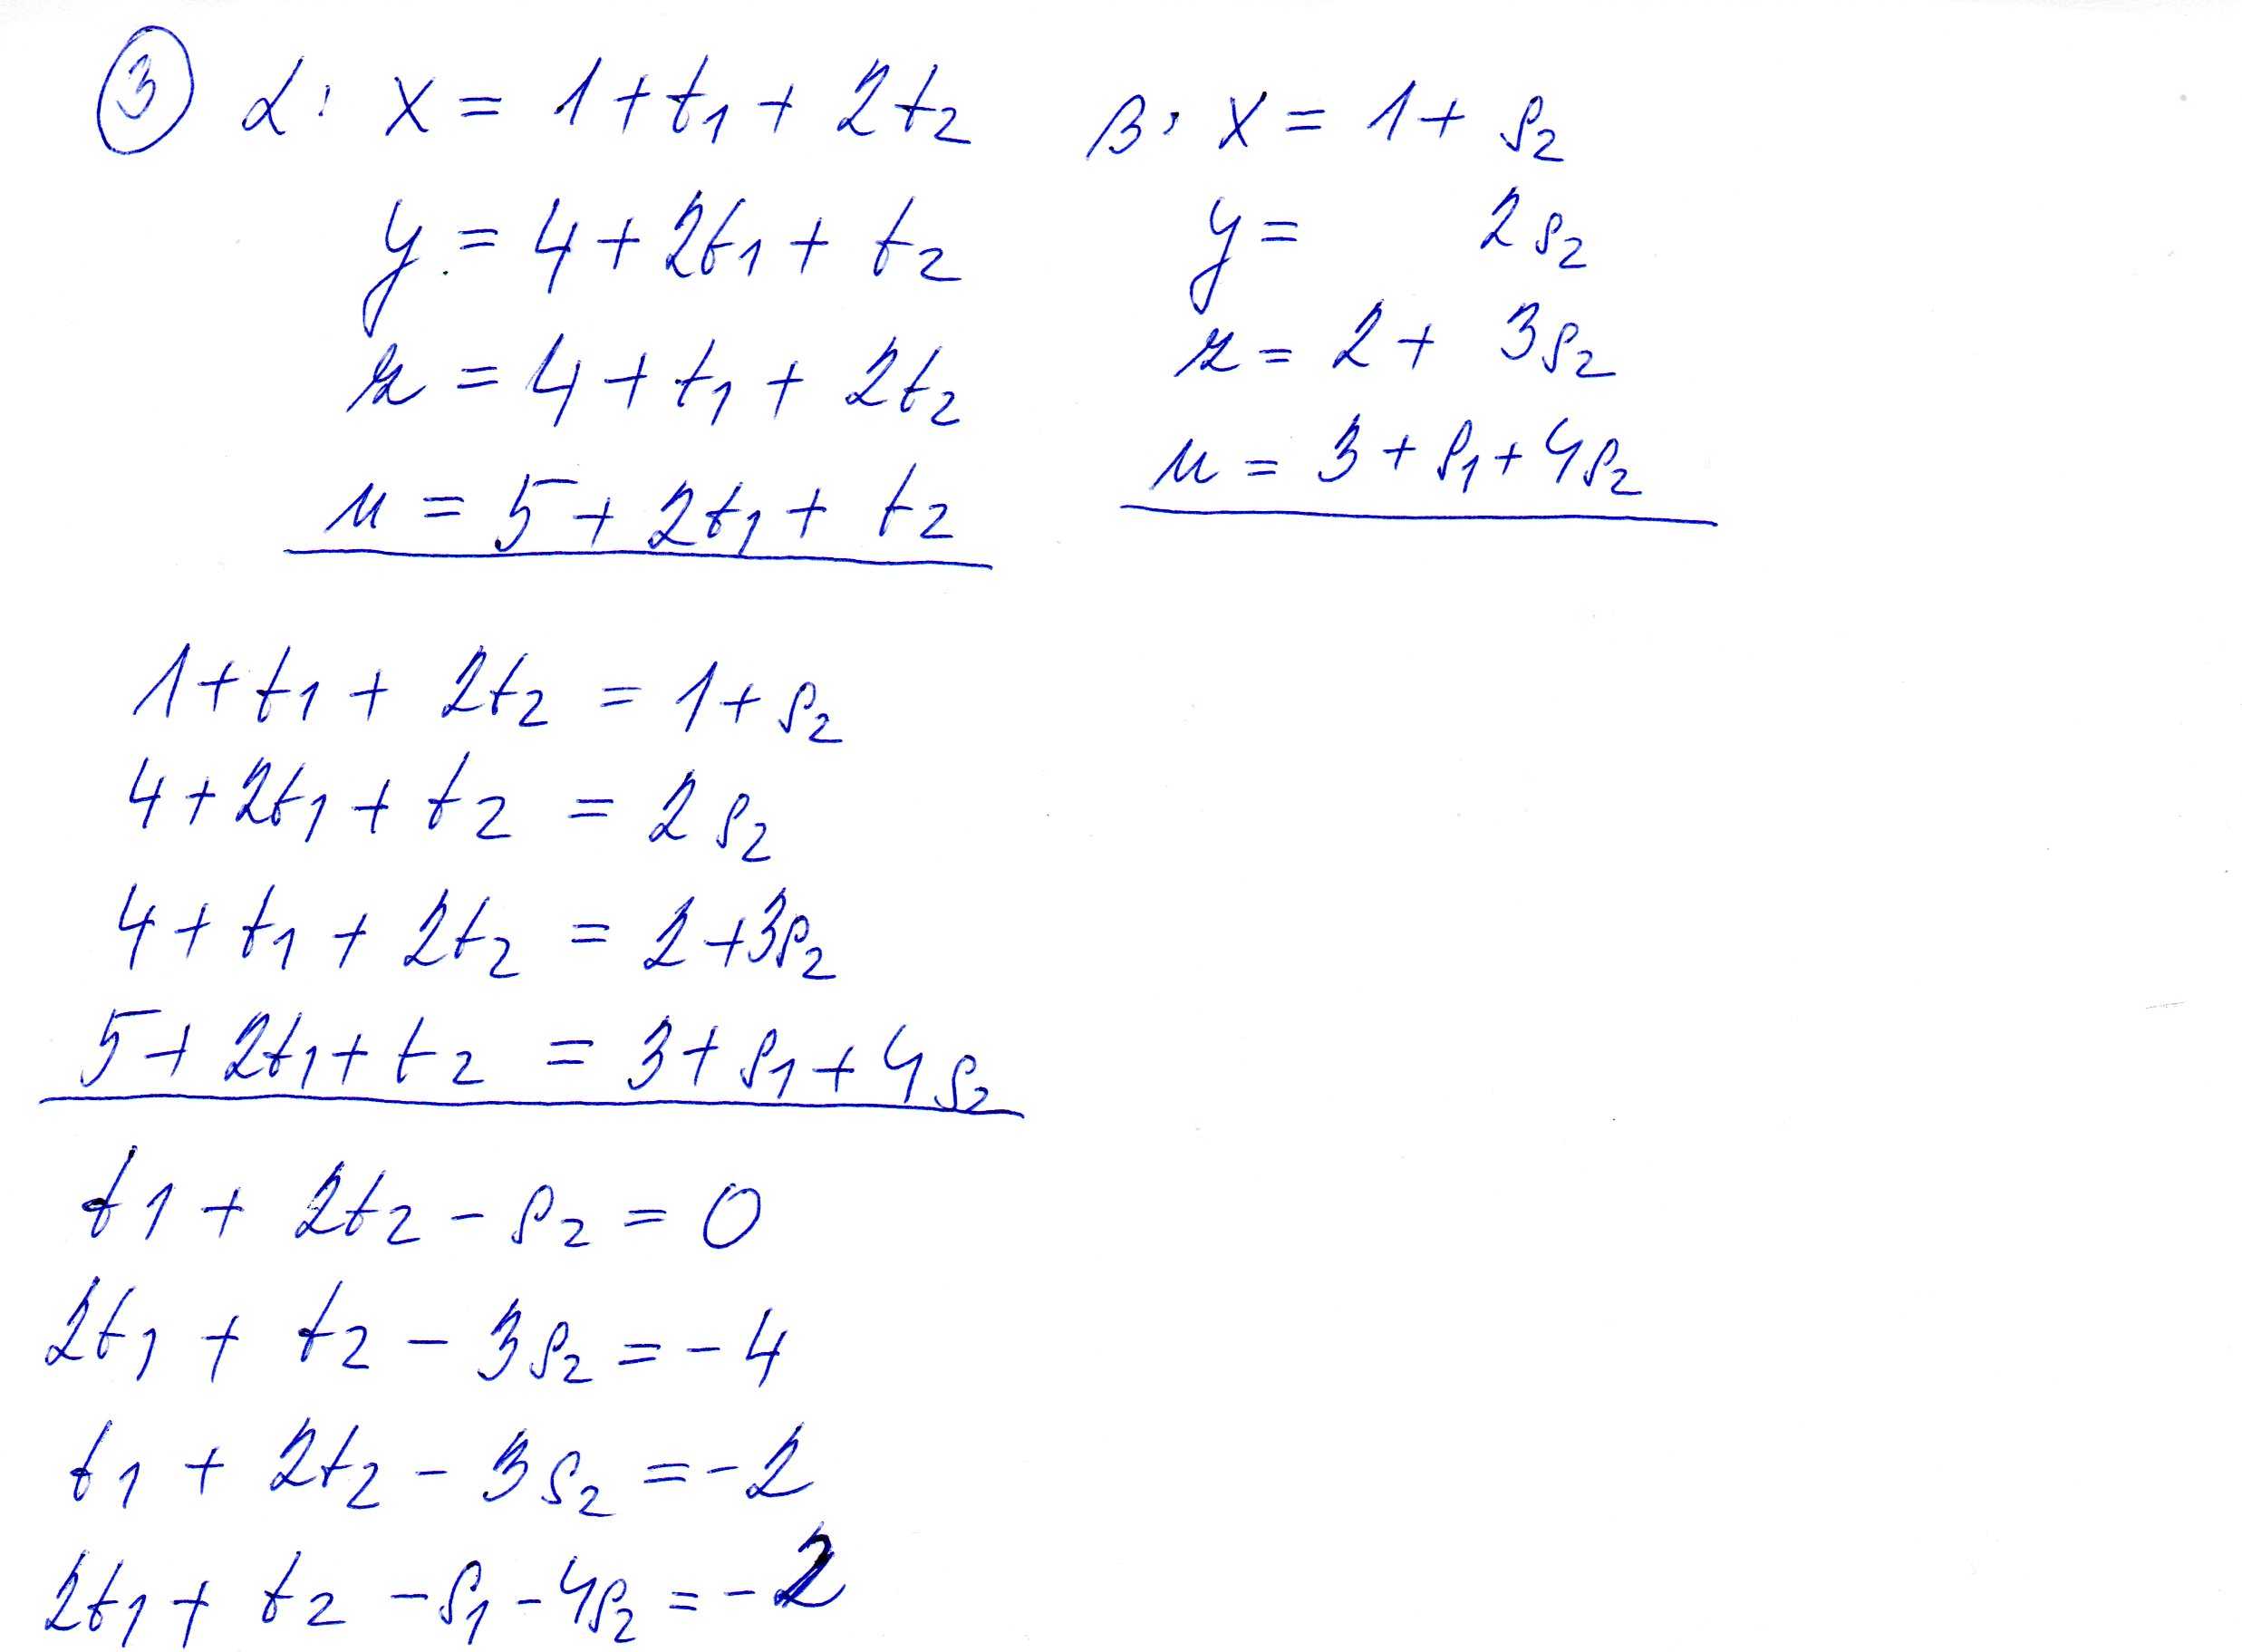 ③ α: x = 1 + t1 + 2t2
y = 4 + 2t1 + t2
z = 4 + t1 + 2t2
u = 5 + 2t1 + t2
β: x = 1 + s2
y = 2s2
z = 2 + 3s2
u = 3 + s1 + 4s2
1 + t1 + 2t2 = 1 + s2
4 + 2t1 + t2 = 2s2
4 + t1 + 2t2 = 2 + 3s2
5 + 2t1 + t2 = 3 + s1 + 4s2
t1 + 2t2 - s2 = 0
2t1 + t2 - 3s2 = -4
t1 + 2t2 - 3s2 = -2
2t1 + t2 - s1 - 4s2 = -2